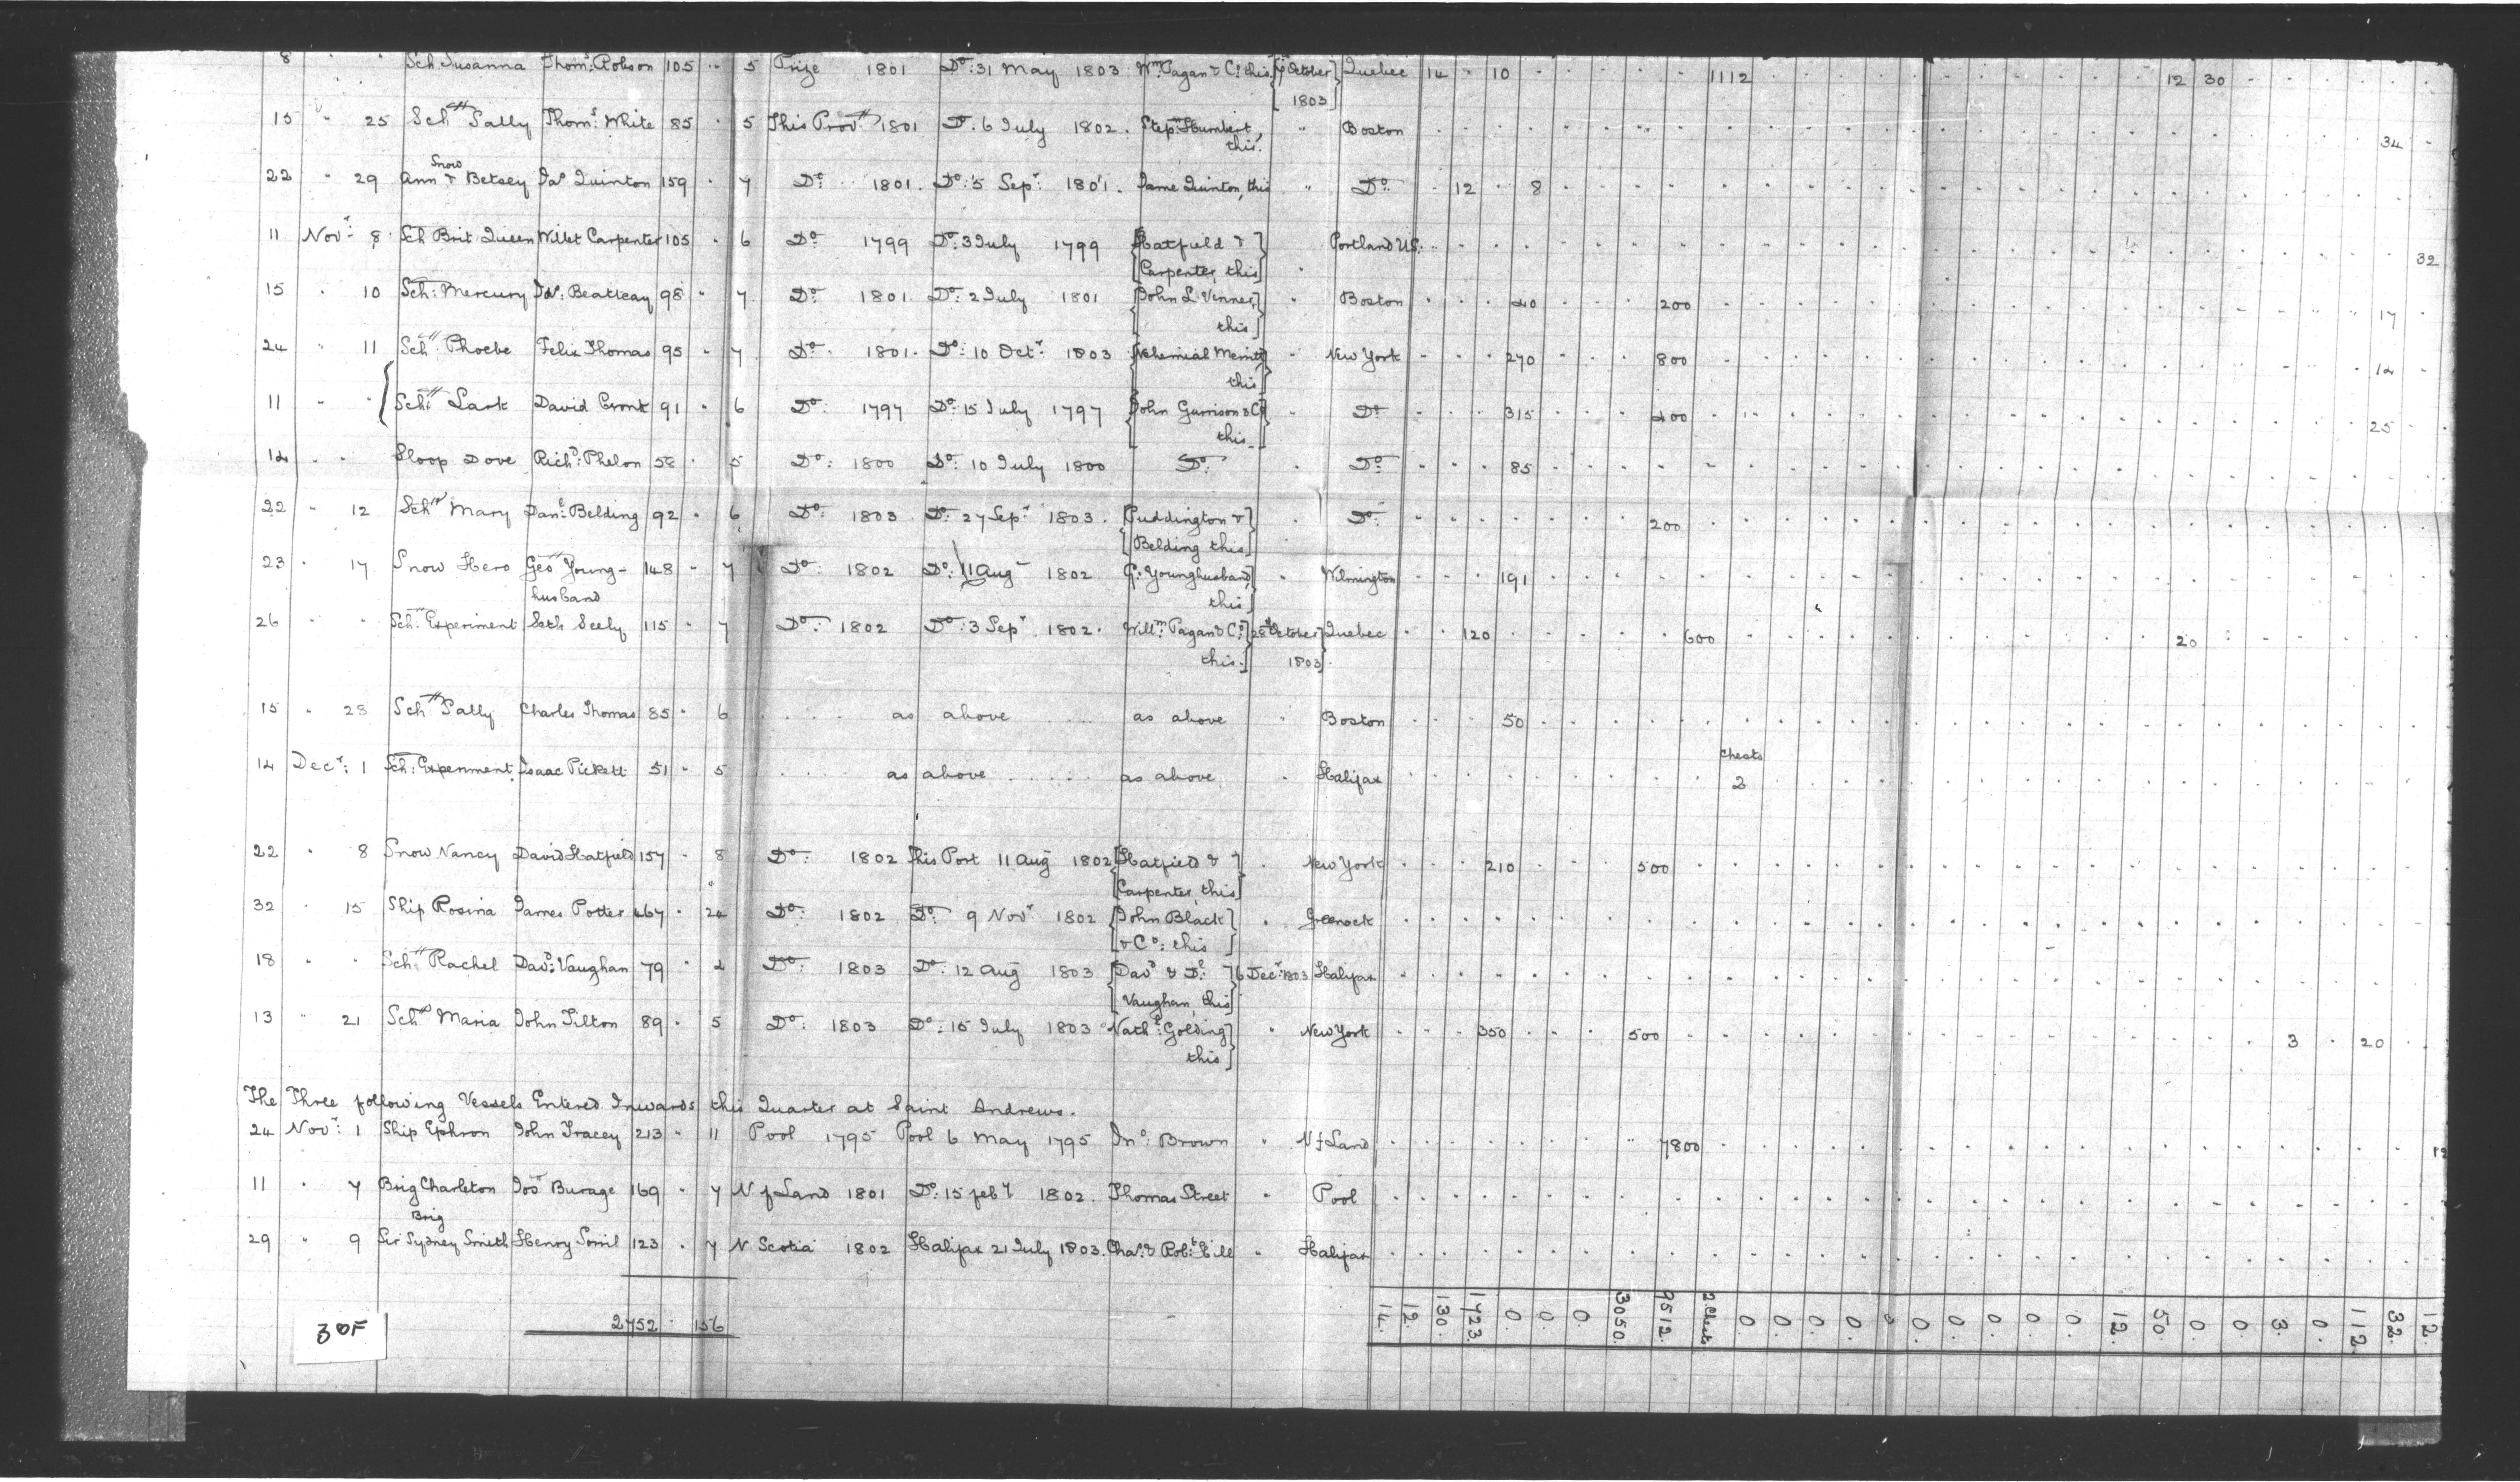 8 " " Sch Susanna Thom.s Robson 105 " 5 Prize 1801 Do: 31 May 1803 Wm. Pagan & Co. this October Quebec 14 " 10 1112 12 30
1803
15 " 25 Schr Sally Thom.s White 85 " 5 This Prov. 1801 Do. 6 July 1802. Step.n Humbert, " Boston 34
this.
Snow
22 " 29 Ann & Betsey Jas Quinton 159 " 7 Do: 1801. Do: 5 Sepr. 1801. Jame Quinton, this " Do 12 8
11 Novr. 8 Sch Brit Queen Willet Carpenter 105 " 6 Do 1799 Do: 3 July 1799 Hatfield & Portland US. 32
Carpenter, this "
15 " 10 Sch: Mercury Beatteay 98 " 7 Do: 1801. Do: 2 July 1801 John L Venner, " Boston 40 200 17
this
24 " 11 Schr. Phoebe Felix Thomas 95 " 7 Do. 1801. Do: 10 Octr. 1803 Nehemiah Merritt " New York 270 800 14
this
11 " " Schr. Lark David Cronk 91 " 6 Do: 1797 Do: 15 July 1797 John Garrison & Co " Do 315 400 25
this
14 " " Sloop Dove Richd: Phelon 58 " 5 Do: 1800 Do: 10 July 1800 Do: " Do: 85
22 " 12 Schr Mary Danl: Belding 92 " 6 Do: 1803 Do: 27 Sepr. 1803. Puddington & " Do: 200
Belding this
23 " 17 Snow Hero Geo Young- 148 " 7 Do: 1802 Do: 11 Aug 1802 G: Younghusband, " Wilmington 191
husband this
26 " " Sch. Experiment Seth Seely 115 " 7 Do: 1802 Do: 3 Sepr 1802. Willm. Pagan & Co. 28 October Quebec 120 600 20
this. 1803
15 " 28 Schr Sally Charles Thomas 85 " 6 as above as above " Boston 50
Chests
14 Decr: 1 Sch: Experiment Isaac Pickett 51 " 5 as above as above " Halifax 2
22 " 8 Snow Nancy David Hatfield 157 " 8 Do: 1802 This Port 11 Aug 1802 Hatfield & " New York 210 500
Carpenter, this
32 " 15 Ship Rosina James Potter 467 " 24 Do: 1802 Do: 9 Novr 1802 John Black " Greenock
& Co: this
18 " " Sch Rachel Davd: Vaughan 79 " 4 Do: 1803 Do: 12 Aug 1803 Davd & Dl: 6 Decr. 1803 Halifax
Vaughan, this
13 " 21 Schr Maria John Tilton 89 " 5 Do: 1803 Do: 15 July 1803 Nathl: Golding " New York 350 500 3 20
this
The Three following Vessels Entered Inwards this Quarter at Saint Andrews.
24 Novr: 1 Ship Ephron John Tracey 213 " 11 Pool 1795 Pool 6 May 1795 Jno: Brown " N f Land 7800 12
11 " 7 Brig Charleton Jos Burage 169 " 7 N f Land 1801 Do: 15 feby 1802. Thomas Street " Pool
Brig
29 " 9 Sir Sydney Smith Henry 123 " 7 N Scotia 1802 Halifax 21 July 1803. Chas. & Robt. Hill " Halifax
14. 12. 130. 1723. 0. 0. 0. 3050. 9512. 2. Chests 0. 0. 0. 0. 0. 0. 0. 0. 0. 0. 12. 50. 0. 0. 3. 0. 112. 32. 12.
2752 156
30F